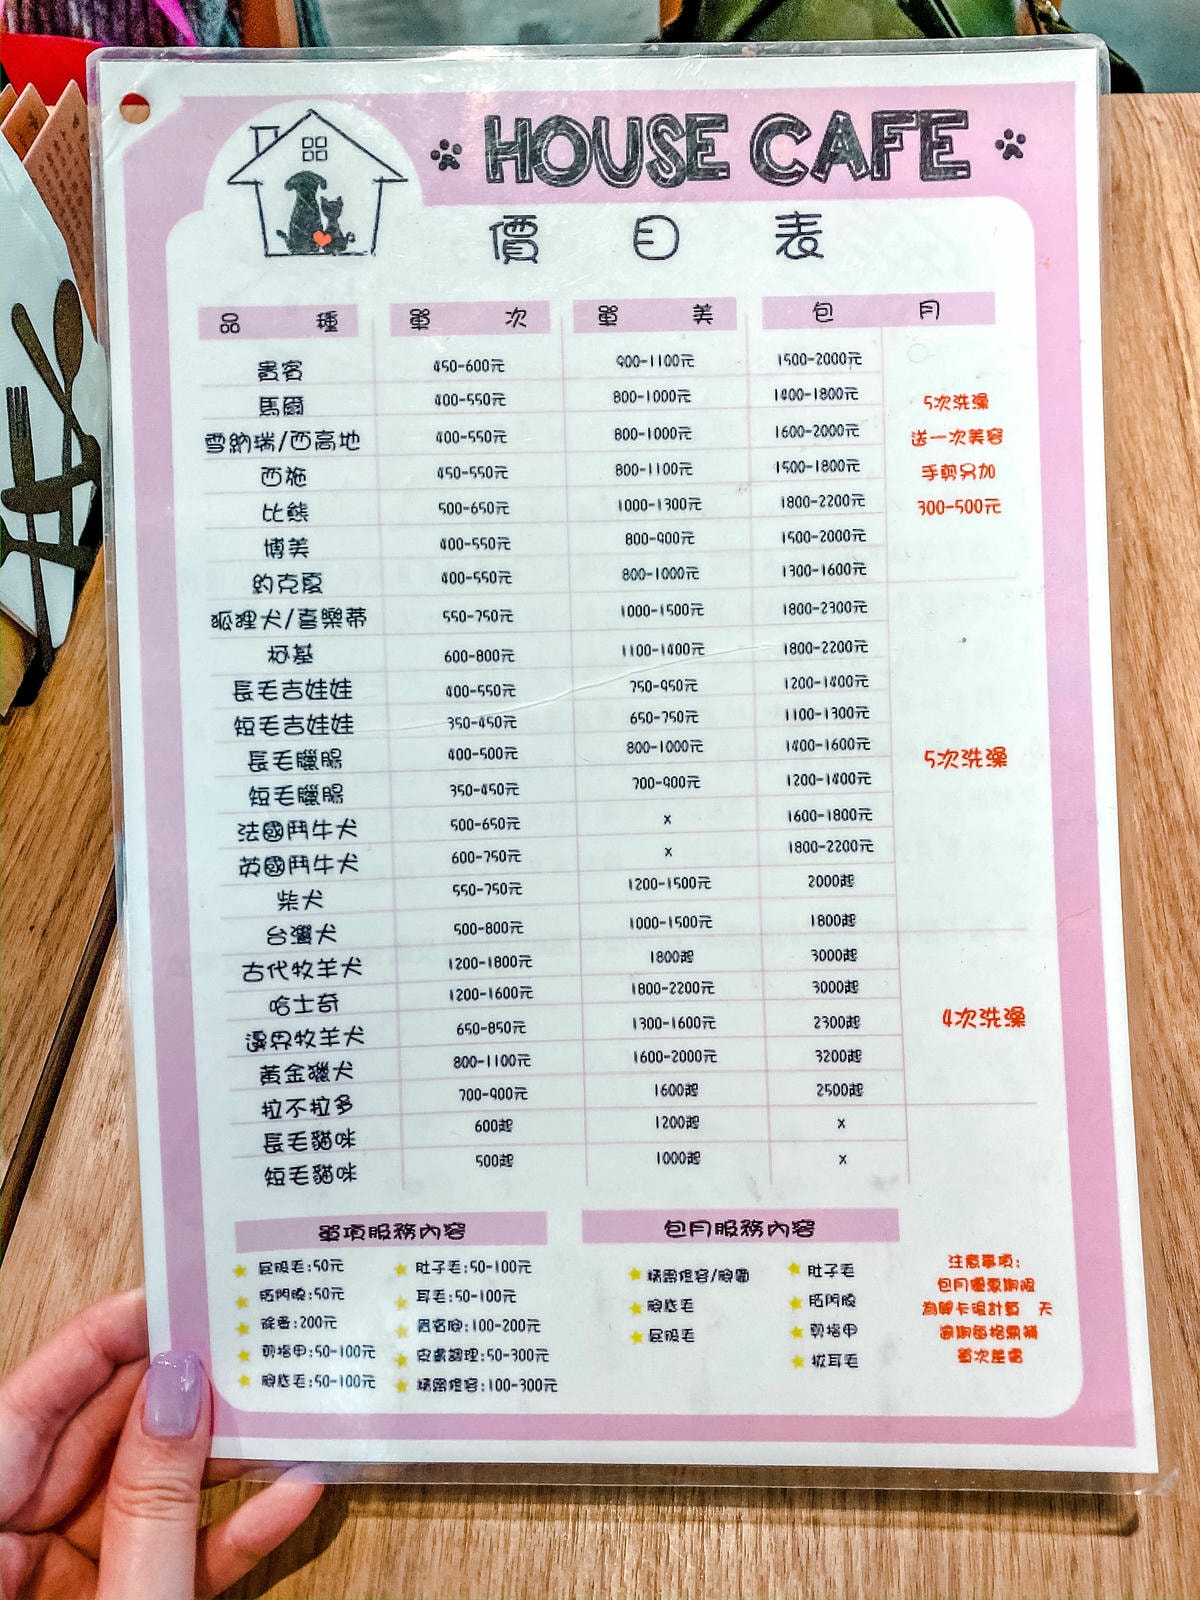 HOUSE CAFE
價目表
品種 單次 單美 包月
貴賓 450-600元 900-1100元 1500-2000元
馬爾 400-550元 800-1000元 1400-1800元
5次洗澡
雪納瑞/西高地 400-550元 800-1000元 1600-2000元
送一次美容
西施 450-550元 800-1100元 1500-1800元
手剪另加
比熊 500-650元 1000-1300元 1800-2200元
300-500元
博美 400-550元 800-900元 1500-2000元
約克夏 400-550元 800-1000元 1300-1600元
狐狸犬/喜樂蒂 550-750元 1000-1500元 1800-2300元
柯基 600-800元 1100-1400元 1800-2200元
長毛吉娃娃 400-550元 750-950元 1200-1400元
短毛吉娃娃 350-450元 650-750元 1100-1300元
長毛臘腸 400-500元 800-1000元 1400-1600元
5次洗澡
短毛臘腸 350-450元 700-900元 1200-1400元
法國鬥牛犬 500-650元 x 1600-1800元
英國鬥牛犬 600-750元 x 1800-2200元
柴犬 550-750元 1200-1500元 2000起
台灣犬 500-800元 1000-1500元 1800起
古代牧羊犬 1200-1800元 1800起 3000起
哈士奇 1200-1600元 1800-2200元 3000起
邊界牧羊犬 650-850元 1300-1600元 2300起
4次洗澡
黃金獵犬 800-1100元 1600-2000元 3200起
拉不拉多 700-900元 1600起 2500起
長毛貓咪 600起 1200起 x
短毛貓咪 500起 1000起 x
單項服務內容
屁股毛:50元 肚子毛:50-100元
肛門腺:50元 耳毛:50-100元
除蚤:200元 貴賓腳:100-200元
剪指甲:50-100元 皮膚調理:50-300元
腳底毛:50-100元 精密燈容:100-300元
包月服務內容
精密燈容/腳圍 肚子毛
腳底毛 肛門腺
屁股毛 剪指甲
拔耳毛
注意事項:
包月優惠期限
為開卡現計算 天
逾期每格需補
單次差價